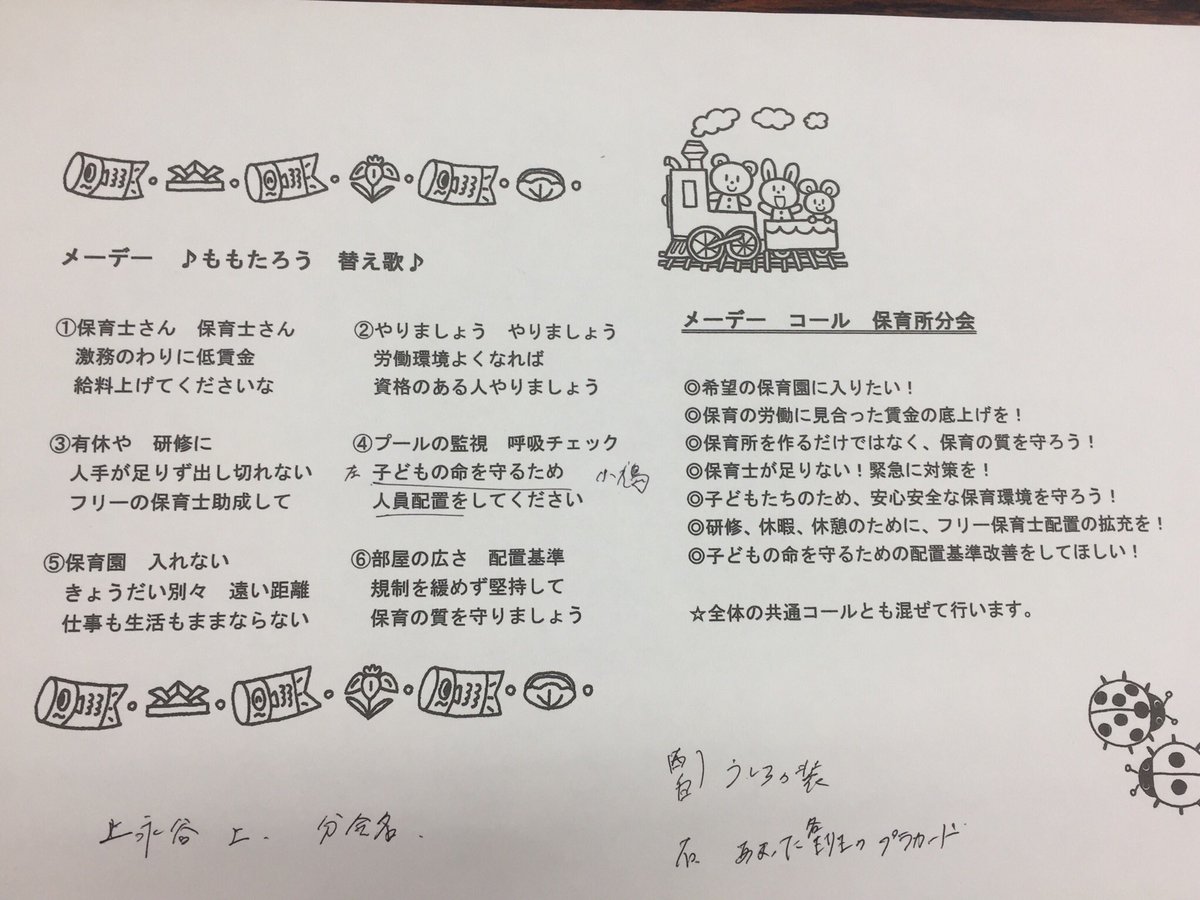 メーデー　♪ももたろう　替え歌♪
①保育士さん　保育士さん
激務のわりに低賃金
給料上げてくださいな
②やりましょう　やりましょう
労働環境よくなれば
資格のある人やりましょう
③有休や　研修に
人手が足りず出し切れない
フリーの保育士助成して
④プールの監視　呼吸チェック
子どもの命を守るため
人員配置をしてください
⑤保育園　入れない
きょうだい別々　遠い距離
仕事も生活もままならない
⑥部屋の広さ　配置基準
規制を緩めず堅持して
保育の質を守りましょう
上永谷　上．　分会名．
メーデー　コール　保育所分会
◎希望の保育園に入りたい！
◎保育の労働に見合った賃金の底上げを！
◎保育所を作るだけではなく、保育の質を守ろう！
◎保育士が足りない！緊急に対策を！
◎子どもたちのため、安心安全な保育環境を守ろう！
◎研修、休暇、休憩のために、フリー保育士配置の拡充を！
◎子どもの命を守るための配置基準改善をしてほしい！
☆全体の共通コールとも混ぜて行います。
うしろの装
プラカード